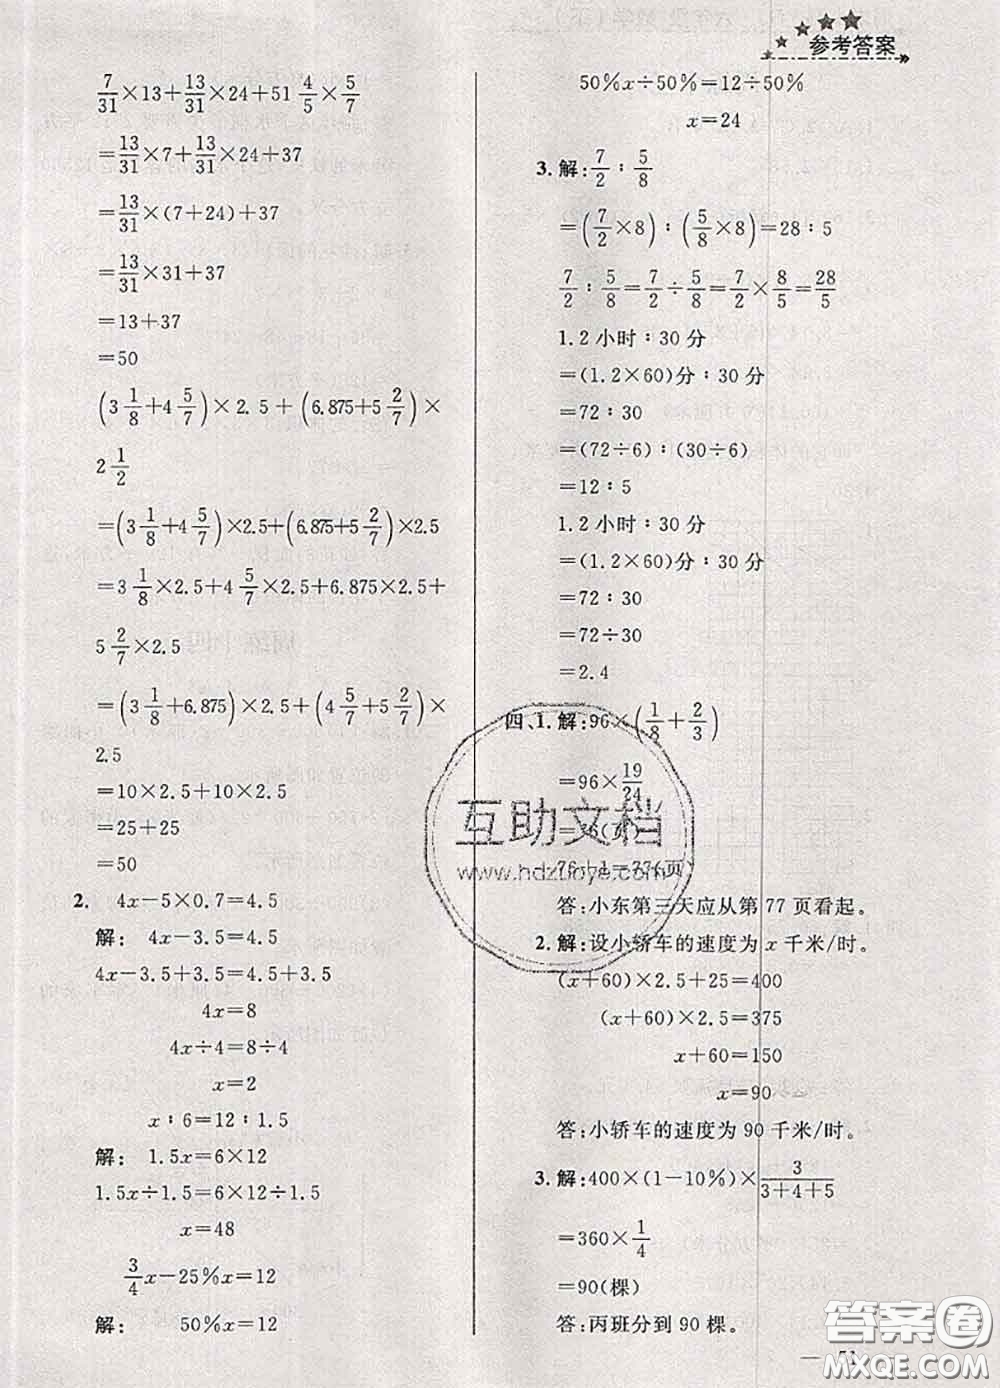 参考答案
7/31×13+13/31×24+51 4/5×5/7
=13/31×7+13/31×24+37
=13/31×(7+24)+37
=13/31×31+37
=13+37
=50
(3 1/8+4 5/7)×2.5+(6.875+5 2/7)×
2 1/2
=(3 1/8+4 5/7)×2.5+(6.875+5 2/7)×2.5
=3 1/8×2.5+4 5/7×2.5+6.875×2.5+
5 2/7×2.5
=(3 1/8+6.875)×2.5+(4 5/7+5 2/7)×
2.5
=10×2.5+10×2.5
=25+25
=50
2. 4x-5×0.7=4.5
解: 4x-3.5=4.5
4x-3.5+3.5=4.5+3.5
4x=8
4x÷4=8÷4
x=2
x∶6=12∶1.5
解: 1.5x=6×12
1.5x÷1.5=6×12÷1.5
x=48
3/4x-25%x=12
解: 50%x=12
50%x÷50%=12÷50%
x=24
3.解:7/2∶5/8
=(7/2×8)∶(5/8×8)=28∶5
7/2∶5/8=7/2÷5/8=7/2×8/5=28/5
1.2小时∶30分
=(1.2×60)分∶30分
=72∶30
=(72÷6)∶(30÷6)
=12∶5
1.2小时∶30分
=(1.2×60)分∶30分
=72∶30
=72÷30
=2.4
四、1.解:96×(1/8+2/3)
=96×19/24
=76(页)
76+1=77(页)
答:小东第三天应从第77页看起。
2.解:设小轿车的速度为x千米/时。
(x+60)×2.5+25=400
(x+60)×2.5=375
x+60=150
x=90
答:小轿车的速度为90千米/时。
3.解:400×(1-10%)×3/(3+4+5)
=360×1/4
=90(棵)
答:丙班分到90棵。
— 51
互助文档
www.hdzuoye.com
答案圈
MXQE.COM